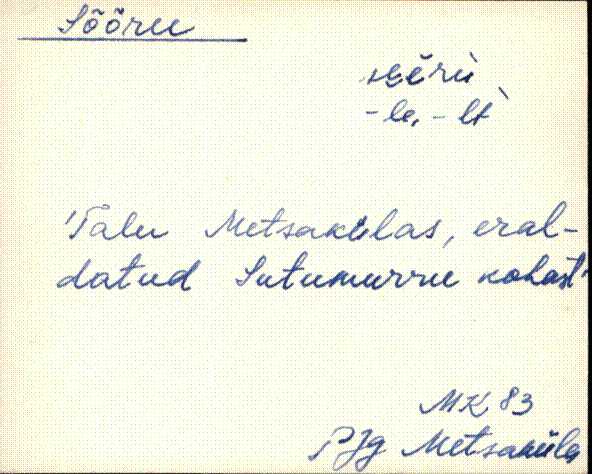 Sõõru
-le, -lt
'Talu Metsakülas, eral-
datud Sutumurru kohast'
MK 83
PJg Metsaküla